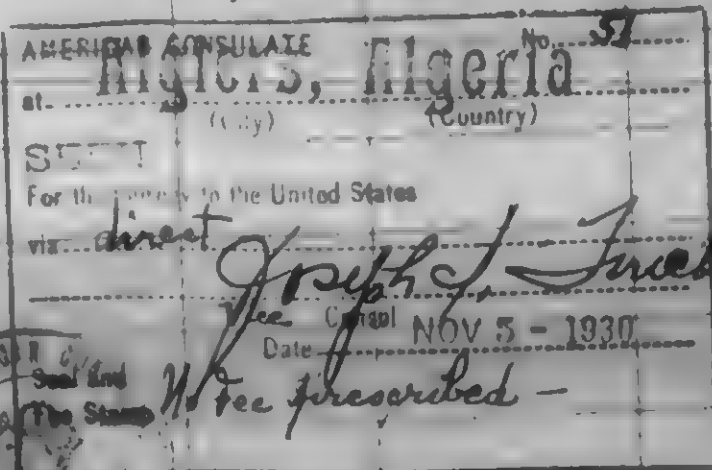 AMERICAN CONSULATE No. 51
at Algiers, Algeria
(City) (Country)
SEEN
For the journey to the United States
via direct
Joseph I.
Vice Consul
Date NOV 5 - 1930
Seal and
Fee Stamp No fee prescribed -